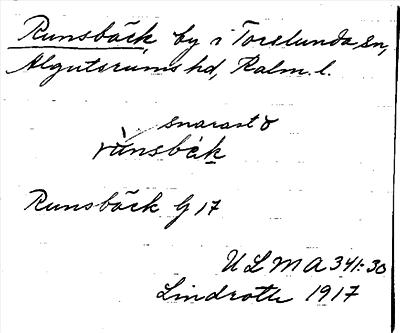 Runsbäck, by i Torslunda sn,
Algutsrums hd, Kalm. l.
snarast o
rùnsbäk
Runsbäck G 17
ULMA 341:30
Lindroth 1917